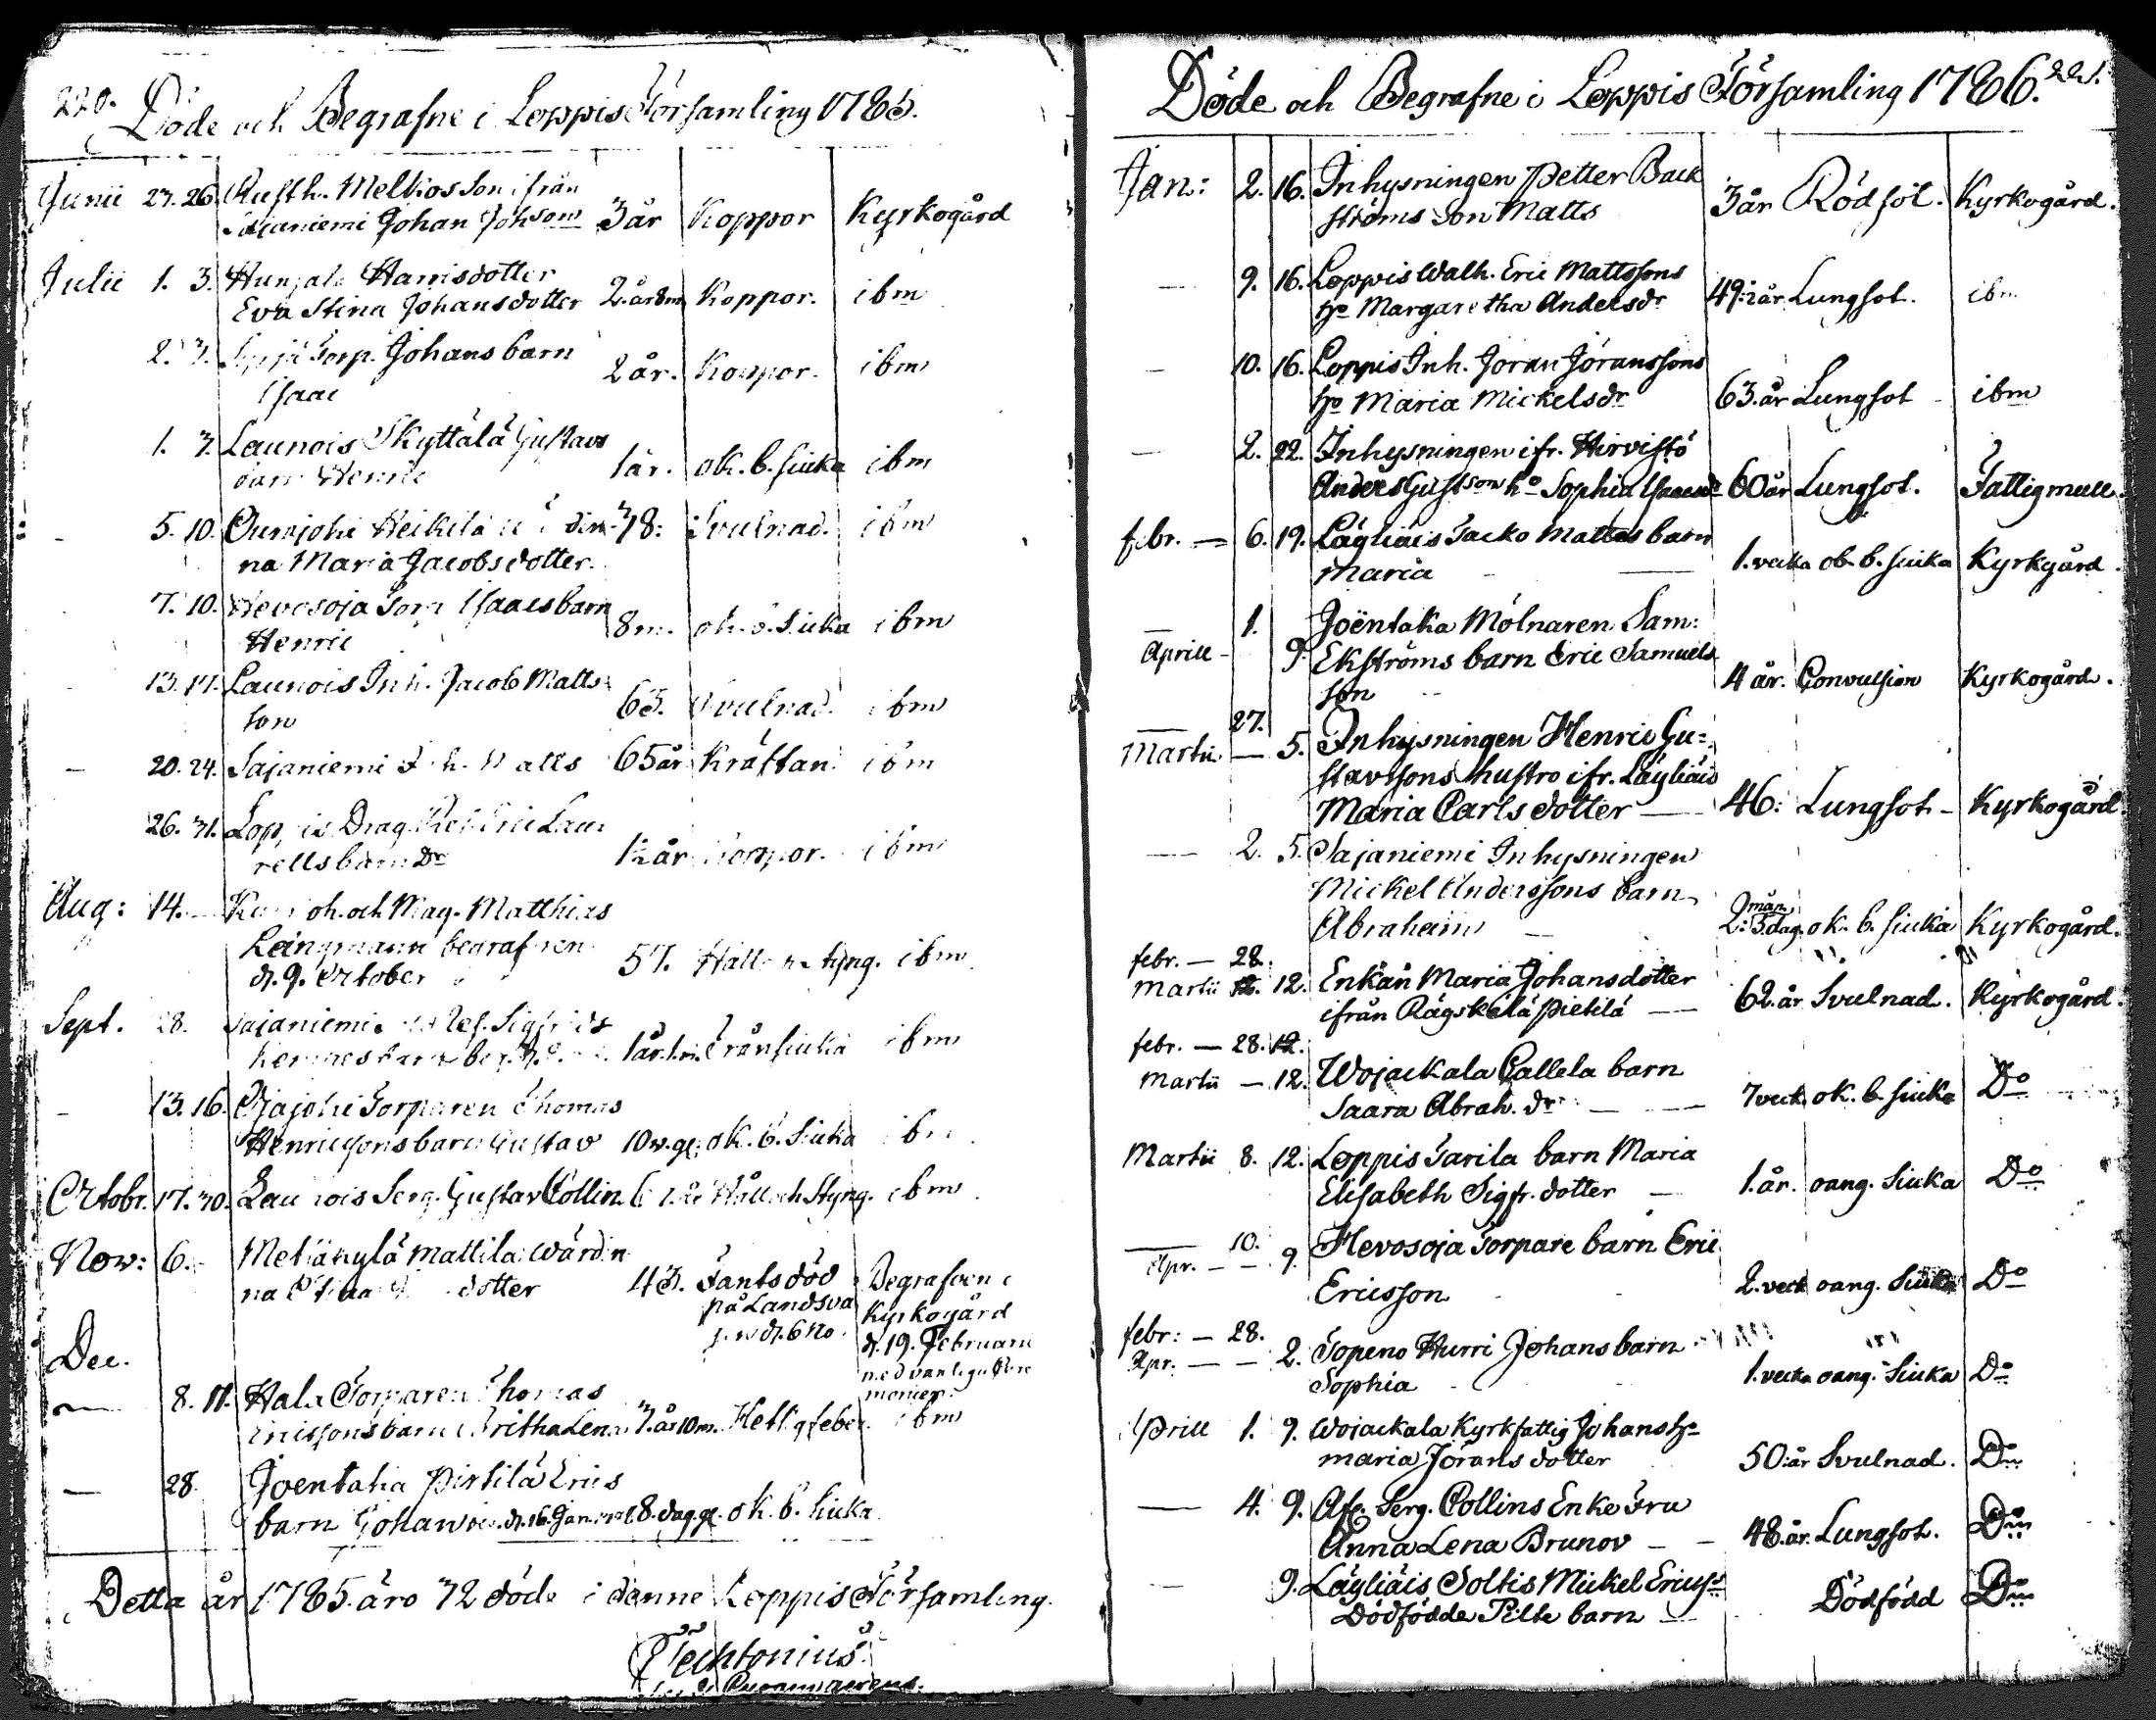 220.
Döde och Begrafne i Loppis Församling 1785.
Junii 23. 26. Rusth. Melkios Son ifrån
Sajaniemi Johan Johsson 3 år Koppor Kyrkogård
Julii 1. 3. Hunjala Harrisdotter
Eva Stina Johansdotter 2. år 8 m Koppor. ibm
2. 3. Torp. Johans barn
Isaac 2 år. Koppor. ibm
1. 3. Launois Skyttälä Gustavs
barn Henric 1 år. ok. b. siuka ibm
5. 10. Ourajoki Heikilä
na Maria Jacobsdotter. 78: Svulnad. ibm
7. 10. Hevosoja Torp Isaacs barn
Henric 8 m. ok. b. Siuka ibm
13. 17. Launois Inh. Jacob Matts
son 63. Svulnad. ibm
20. 24. Sajaniemi Inh. Matts 65 år Kräftan. ibm
26. 31. Loppis Drag. Eric Lau
rells barn Dr 1½ år Koppor. ibm
Aug: 14. och Mag. Matthias
Längmann begrafven
d. 9. October 57. Håll och styng. ibm
Sept. 28. Sajaniemi Sigfrids
1 år. 1 m. ibm
13. 16. Ojajoki Torparen Thomas
Henricsons barn Gustav 10 w. gl. ok. b. Siuka ibm
Octobr. 17. 30. Launois Serg. Gustav Collin 61. år Håll och Styng. ibm
Nov: 6. Metiäkylä Mattila Wärdin
na dotter 43. Fants död
på Landsvä
d. 6 No.
Begrafven i
Kyrkogård
d. 19. Februarii
med vanliga Cere
monier.
Dec.
8. 11. Hala Torparen Thomas
Ericssons barn Britha Lena 7. år 10 m. Hetlig feber. ibm
28. Joentaka Pirtilä Erics
barn Johan d. 16. Jan. 8. dag. gl. ok. b. Siuka
Detta år 1785 äro 72 döde i denne Loppis Församling.
Techtonius
221.
Döde och Begrafne i Loppis Församling 1786.
Jan: 2. 16. Inhysningen Petter Back
ströms Son Matts 3 år Rödsot. Kyrkogård.
— 9. 16. Loppis Walh. Eric Mattssons
ho Margaretha Andersdr 49½ år Lungsot. ibm
— 10. 16. Loppis Inh. Joran Joranssons
ho Maria Mickelsdr 63. år Lungsot ibm
— 2. 22. Inhysningen ifr. Hirvistö
Anders Gustsson ho Sophia Isaacsdr 60 år Lungsot. Fattigmull.
febr. — 6. 19. Lägliäis Jacko Mattas barn
Maria — 1. vecka ob. b. siuka Kyrkgård.
— 1. Joëntaka Mölnaren Sam:
Aprill - 9. Ekströms barn Eric Samuels
son 4 år. Convulsion Kyrkogård.
— 27. Inhysningen Henric Gu=
Martii — 5. stavssons hustro ifr. Läyliäis
Maria Carlsdotter — 46: Lungsot - Kyrkogård.
— 2. 5. Sajaniemi Inhysningen
Mickel Anderssons barn
Abraham — 2: mån 3 dag. ok. b. siuka Kyrkogård.
febr. — 28.
Martii 12. 12. Enkan Maria Johansdotter
ifrån Rägskälä Pietilä — 62. år Svulnad. Kyrkogård.
febr. — 28. 12.
Martii — 12. Wojackala Callela barn
Saara Abrah. dr — 7 veck. ok. b. siuka Do
Martii 8. 12. Loppis Jarila barn Maria
Elisabeth Sigfr. dotter — 1. år. oang. Siuka Do
— 10.
Apr. — 9. Hevosoja Torpare barn Eric
Ericsson 2. veck oang. Siuka Do
febr: — 28.
Apr. — 2. Topeno Hurri Johans barn
Sophia 1. vecka oang. Siuka Do
Aprill 1. 9. Wojackala Kyrkfattig Johans ho
Maria Jörans dotter 50: år Svulnad. Do
— 4. 9. Afl. Serg. Collins Enke Fru
Anna Lena Brunov — 48. år. Lungsot. Do
— 9. Läyliäis Soltis Mickel Ericss
Dödfödde Pilte barn — Dödfödd Do